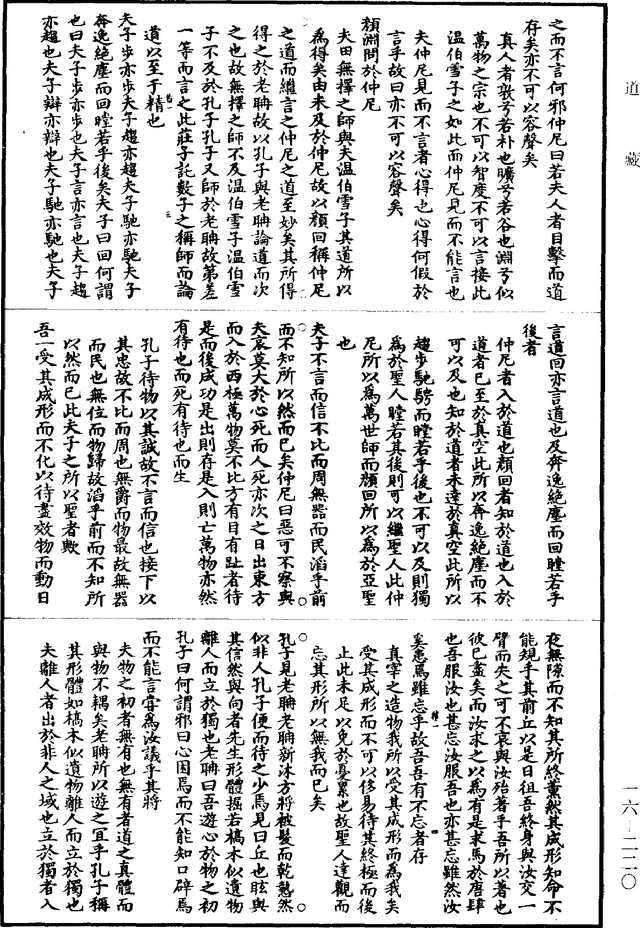 道藏
之而不言何邪仲尼曰若夫人者目擊而道
存矣亦不可以容聲矣
真人者敦兮若朴也曠兮若谷也淵兮似
萬物之宗也不可以智度不可以言接此
温伯雪子之如此而仲尼見而不能言也
夫仲尼見而不言者心得也心得何假於
言乎故曰亦不可以容聲矣
顔淵問於仲尼
夫田無擇之師與夫温伯雪子其道所以
為得矣由未及於仲尼故以顔回稱仲尼
之道而繼言之仲尼之道至妙矣其所得
得之於老聃故以孔子與老聃論道而次
之也故無擇之師不及温伯雪子温伯雪
子不及於孔子孔子又師於老聃故第差
一等而言之此莊子託數子之稱師而論
道以至于精也
夫子步亦步夫子趨亦趨夫子馳亦馳夫子
奔逸絶塵而回瞠若乎後矣夫子曰回何謂
也曰夫子步亦步也夫子言亦言也夫子趨
亦趨也夫子辯亦辯也夫子馳亦馳也夫子
言道回亦言道也及奔逸絶塵而回瞠若乎
後者
仲尼者入於道也顔回者知於道也入於
道者已至於真空此所以奔逸絶塵而不
可以及也知於道者未達於真空此所以
趨步馳騁而瞠若乎後也不可以及則獨
為於聖人瞠若其後則可以繼聖人此仲
尼所以為萬世師而顔回所以為於亞聖
也
夫子不言而信不比而周無器而民滔乎前
而不知所以然而已矣仲尼曰惡可不察與
夫哀莫大於心死而人死亦次之日出東方
而入於西極萬物莫不比方有目有趾者待
是而後成功是出則存是入則亡萬物亦然
有待也而死有待也而生
孔子待物以其誠故不言而信也接下以
其忠故不比而周也無爵而物最故無器
而民也無位而物歸故滔乎前而不知所
以然而已此夫子之所以聖者歟
吾一受其成形而不化以待盡效物而動日
夜無隙而不知其所終薰然其成形知命不
能規乎其前丘以是日徂吾終身與汝交一
臂而失之可不哀與汝殆著乎吾所以著也
彼已盡矣而汝求之以為有是求馬於唐肆
也吾服汝也甚忘汝服吾也亦甚忘雖然汝
奚患焉雖忘乎故吾吾有不忘者存
真宰之造物我所以受其成形而為我矣
受其成形而不可以侈易待其終極而後
止此未足以免於憂累也故聖人達觀而
忘其形所以無我而已矣
孔子見老聃老聃新沐方將被髮而乾慹然
似非人孔子便而待之少焉見曰丘也眩與
其信然與向者先生形體掘若槁木似遺物
離人而立於獨也老聃曰吾遊心於物之初
孔子曰何謂邪曰心困焉而不能知口辟焉
而不能言嘗為汝議乎其將
夫物之初者無有也無有者道之真體而
與物不耦矣老聃所以遊之宜乎孔子稱
其形體如槁木似遺物離人而立於獨也
夫離人者出於非人之域也立於獨者入
一六-二二〇